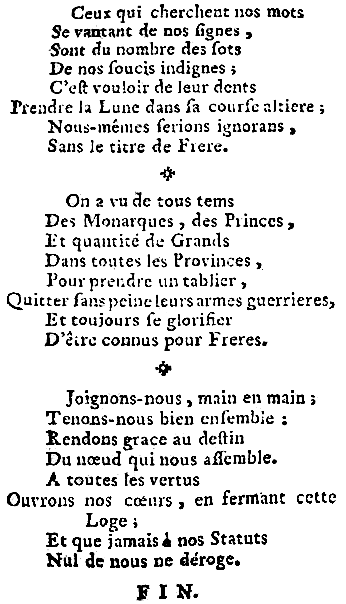 Ceux qui cherchent nos mots
Se vantant de nos ſignes,
Sont du nombre des ſots
De nos ſoucis indignes;
C'eſt vouloir de leur dents
Prendre la Lune dans ſa courſe altiere;
Nous-mêmes ſerions ignorans,
Sans le titre de Frere.
On a vu de tous tems
Des Monarques, des Princes,
Et quantité de Grands
Dans toutes les Provinces,
Pour prendre un tablier,
Quitter ſans peine leurs armes guerrieres,
Et toujours ſe glorifier
D'être connus pour Freres.
Joignons-nous, main en main;
Tenons-nous bien enſemble:
Rendons grace au deſtin
Du nœud qui nous aſſemble.
A toutes les vertus
Ouvrons nos cœurs, en fermant cette
Loge;
Et que jamais à nos Statuts
Nul de nous ne déroge.
FIN.